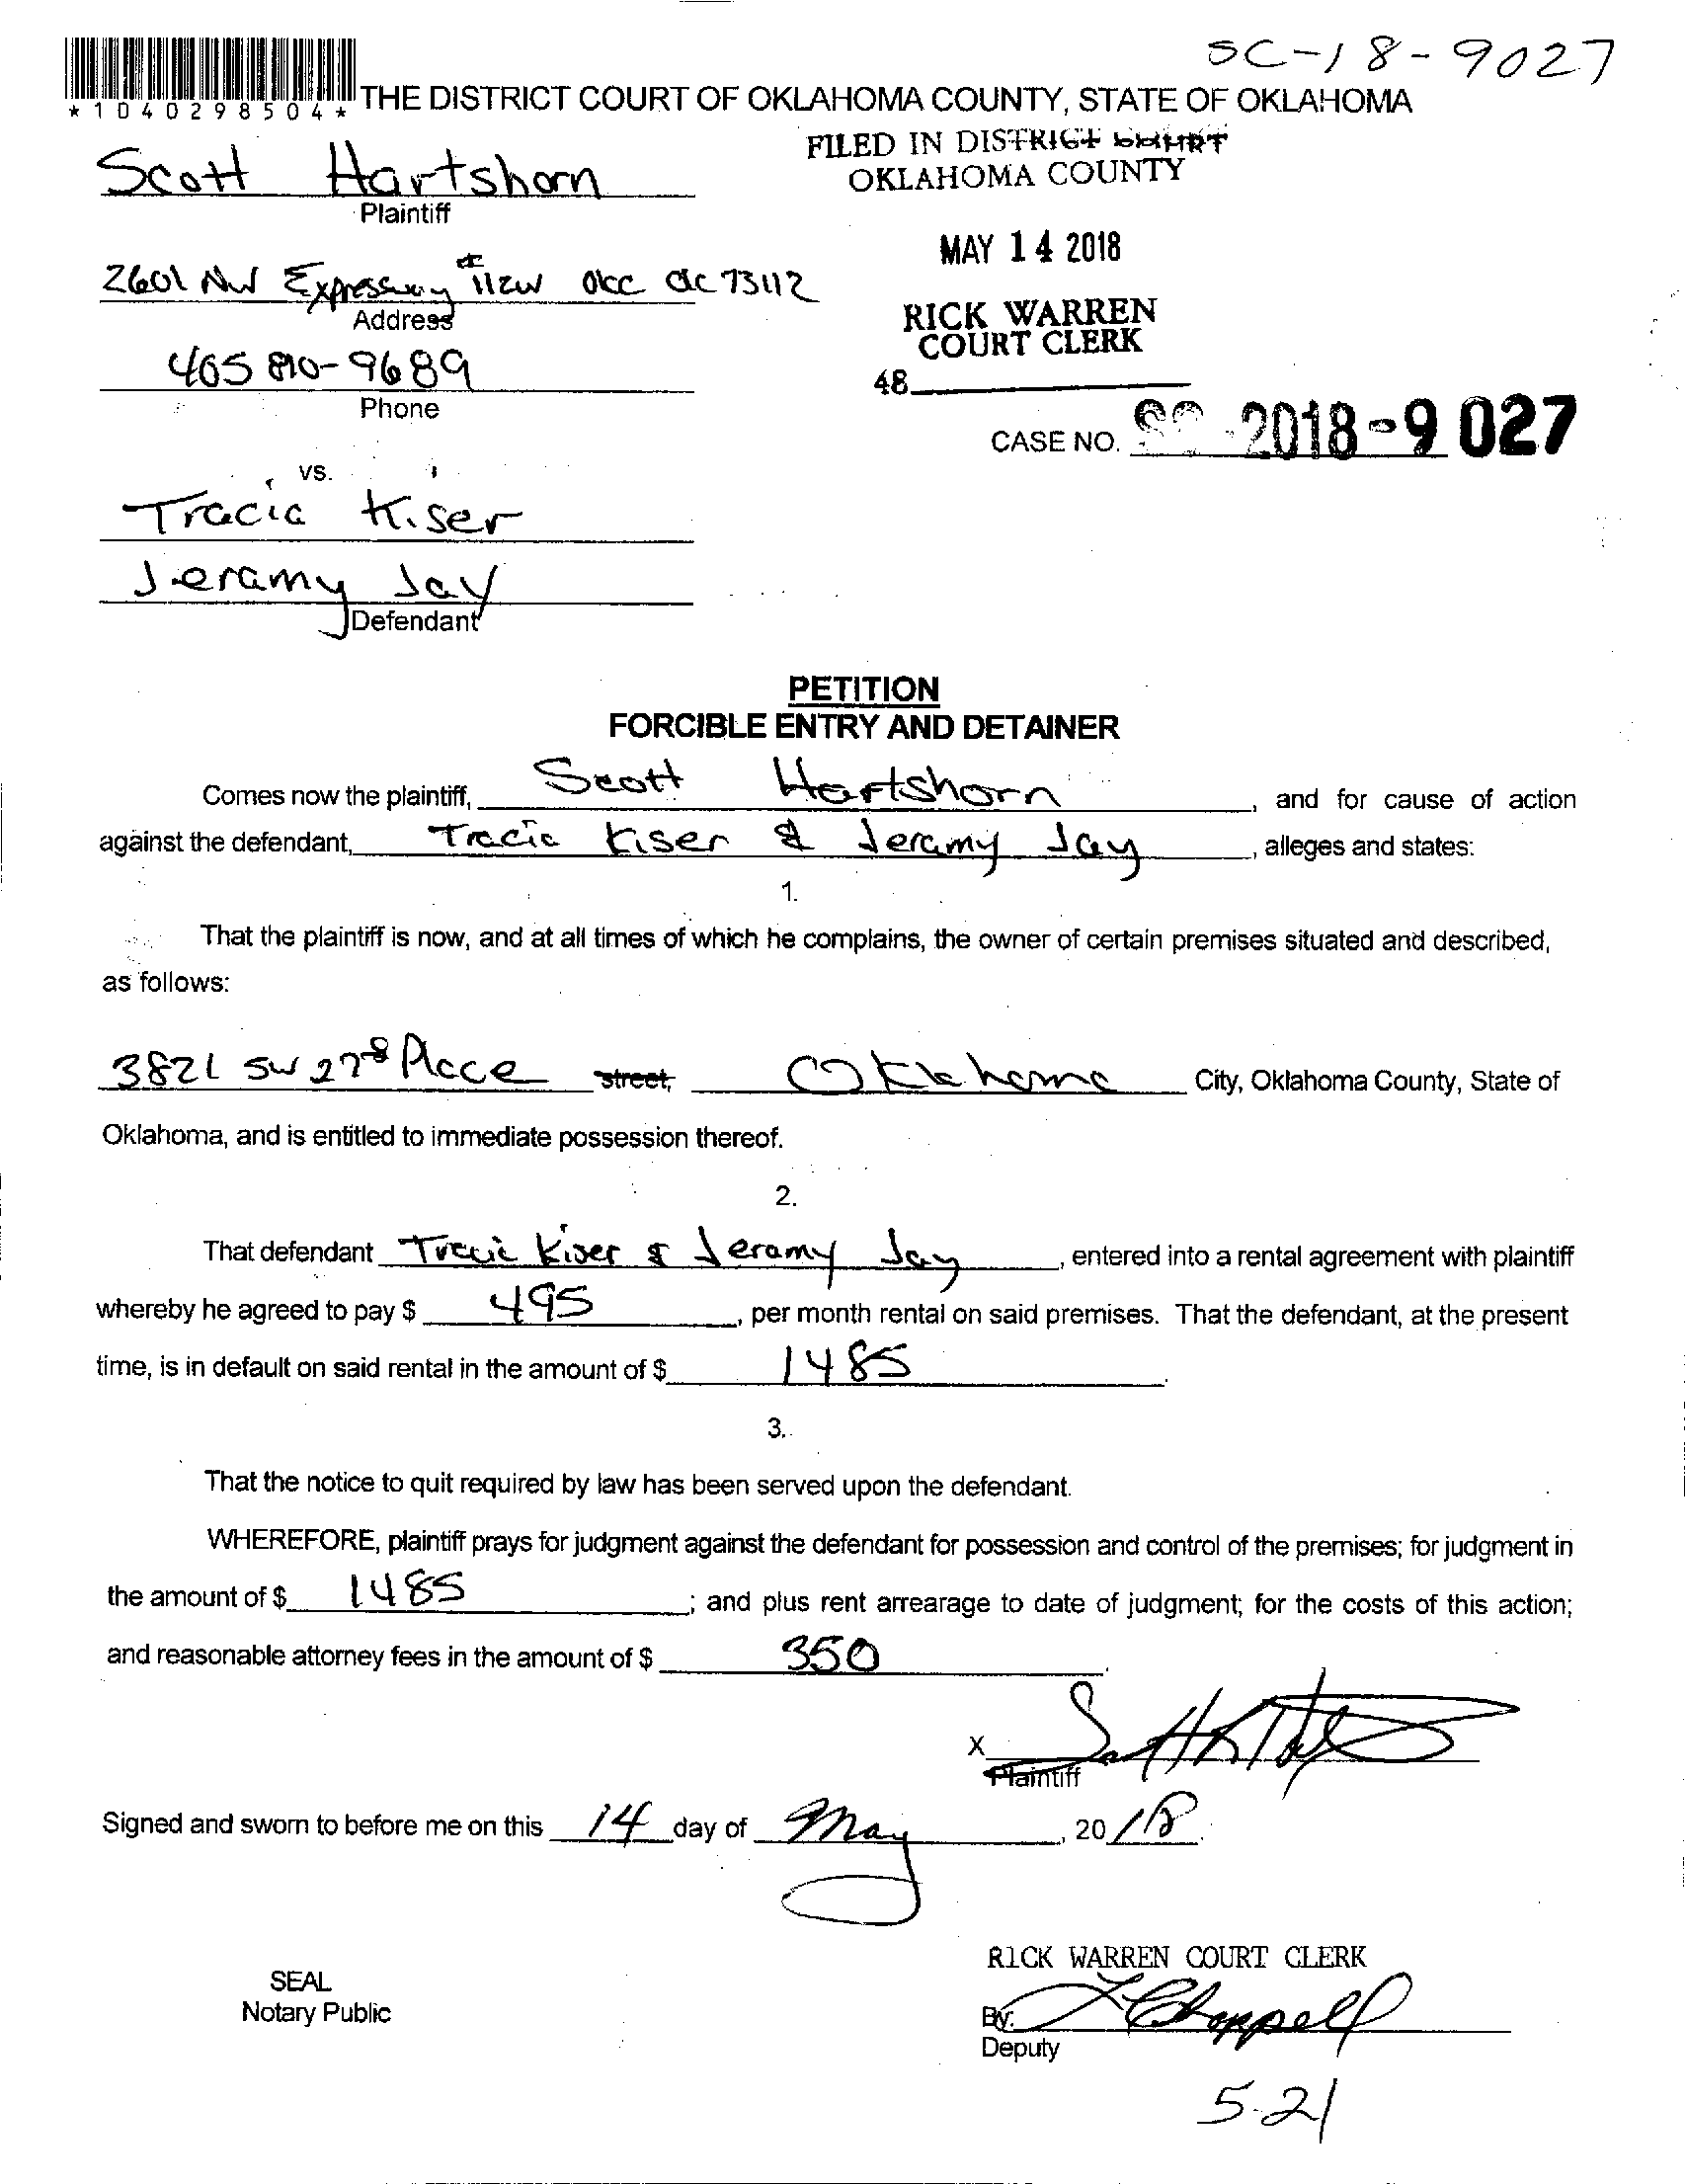 SC-18-9027
*1040298504* THE DISTRICT COURT OF OKLAHOMA COUNTY, STATE OF OKLAHOMA
FILED IN DISTRICT COURT
OKLAHOMA COUNTY
Scott Hartshorn
Plaintiff
MAY 14 2018
2601 NW Expressway # 112W OKC OK 73112
Address
RICK WARREN
COURT CLERK
405 810-9689
Phone
48
CASE NO. SC 2018-9027
vs.
Tracia Kiser
Jeramy Jay
Defendant
PETITION
FORCIBLE ENTRY AND DETAINER
Comes now the plaintiff, Scott Hartshorn, and for cause of action
against the defendant, Tracia Kiser & Jeramy Jay, alleges and states:
1.
That the plaintiff is now, and at all times of which he complains, the owner of certain premises situated and described,
as follows:
3821 SW 27th Place street, Oklahoma City, Oklahoma County, State of
Oklahoma, and is entitled to immediate possession thereof.
2.
That defendant Tracie Kiser & Jeramy Jay, entered into a rental agreement with plaintiff
whereby he agreed to pay $ 495, per month rental on said premises. That the defendant, at the present
time, is in default on said rental in the amount of $ 1485.
3.
That the notice to quit required by law has been served upon the defendant.
WHEREFORE, plaintiff prays for judgment against the defendant for possession and control of the premises; for judgment in
the amount of $ 1485; and plus rent arrearage to date of judgment; for the costs of this action;
and reasonable attorney fees in the amount of $ 350.
X
Plaintiff
Signed and sworn to before me on this 14 day of May, 2018.
RICK WARREN COURT CLERK
SEAL
Notary Public
By: Chappell
Deputy
5-21